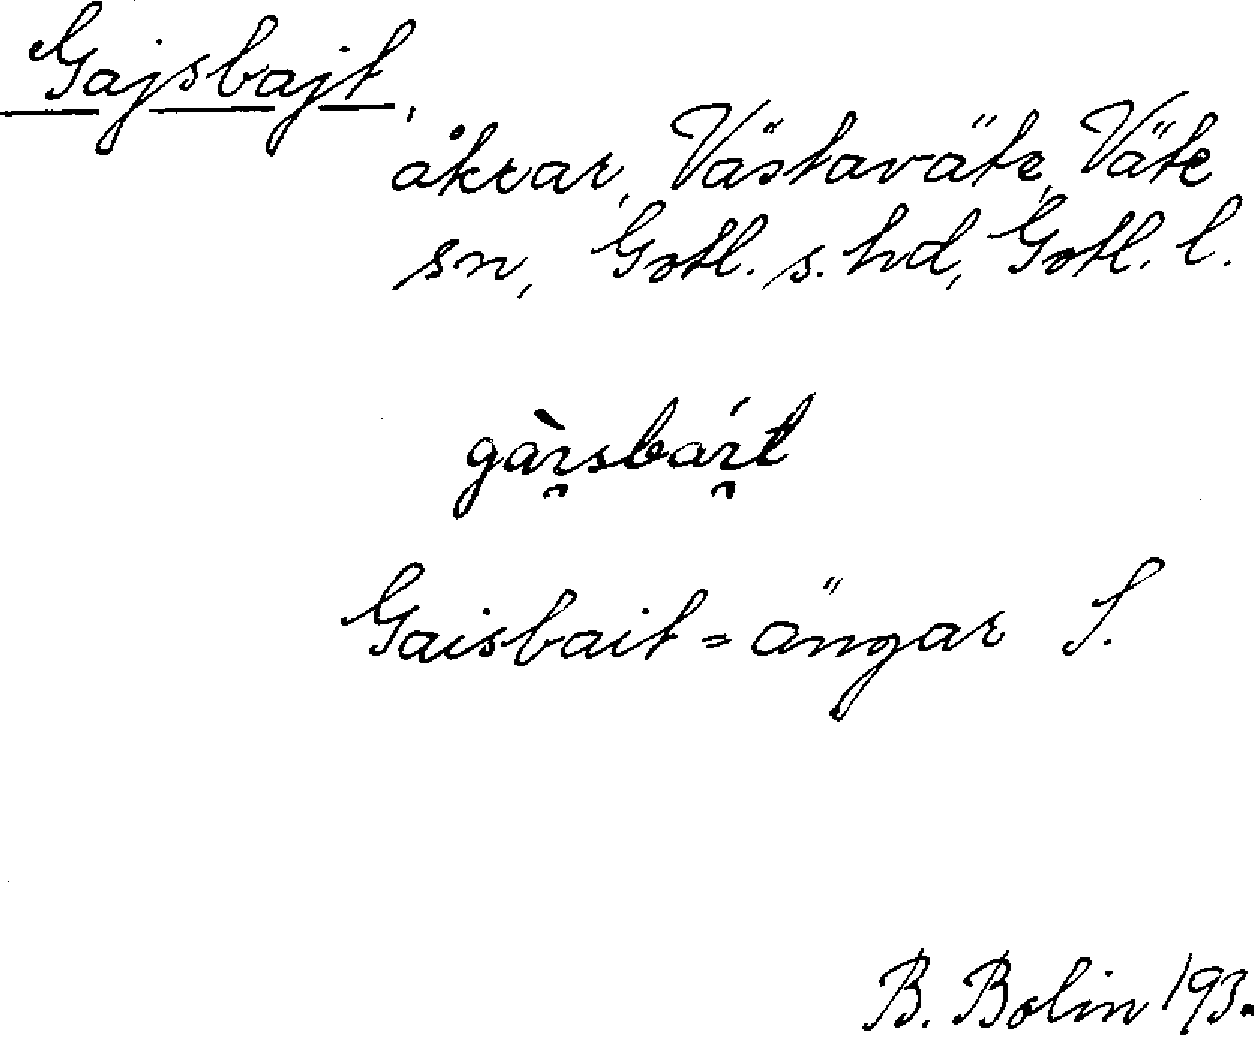 Gajsbajt,
åkrar, Västaväte, Väte
sn, Gotl. s. hd, Gotl. l.
gàı̯sbáı̯t
Gaisbait=ängar S.
B. Bolin 193